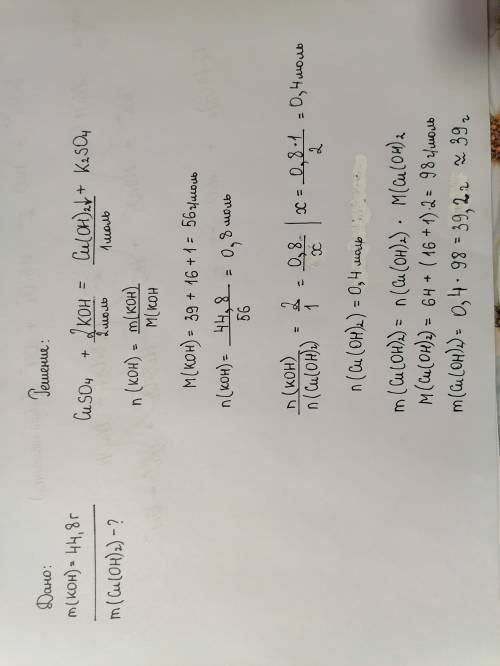 Дано:
m(KOH) = 44,8 г
m(Cu(OH)2) - ?
Решение:
CuSO4 + 2KOH = Cu(OH)2↓ + K2SO4
2 моль 1 моль
n(KOH) = m(KOH) / M(KOH
M(KOH) = 39 + 16 + 1 = 56 г/моль
n(KOH) = 44,8 / 56 = 0,8 моль
n(KOH) / n(Cu(OH)2) = 2 / 1 = 0,8 / x | x = 0,8 · 1 / 2 = 0,4 моль
n(Cu(OH)2) = 0,4 моль
m(Cu(OH)2) = n(Cu(OH)2) · M(Cu(OH)2
M(Cu(OH)2) = 64 + (16 + 1) 2 = 98 г/моль
m(Cu(OH)2) = 0,4 · 98 = 39,2 г ≈ 39 г